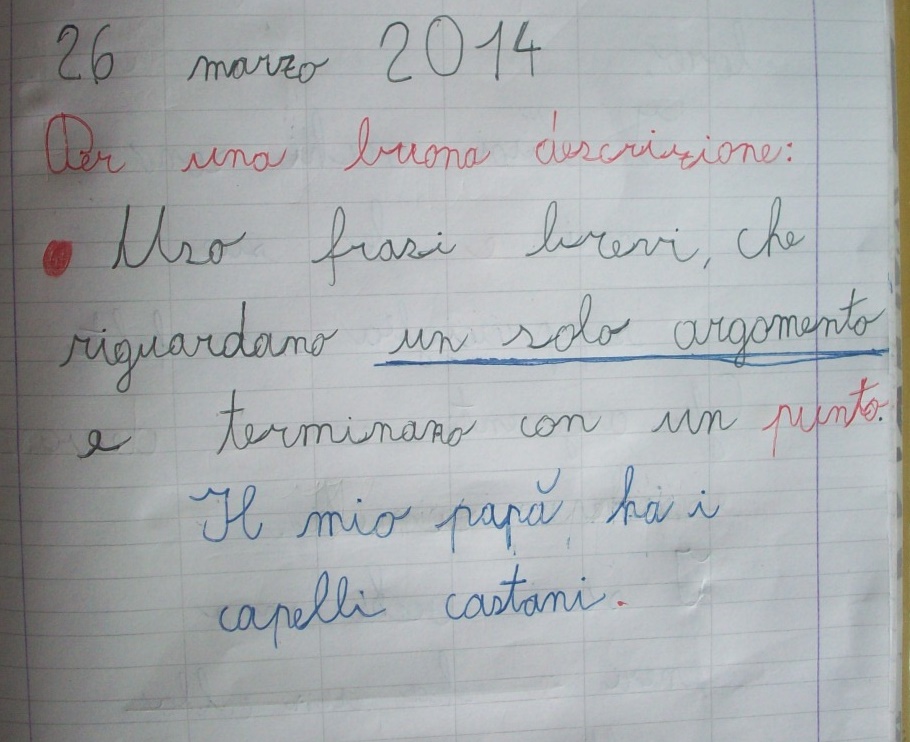 26 marzo 2014
Per una buona descrizione:
Uso frasi brevi, che
riguardano un solo argomento
e terminano con un punto.
Il mio papà ha i
capelli castani.